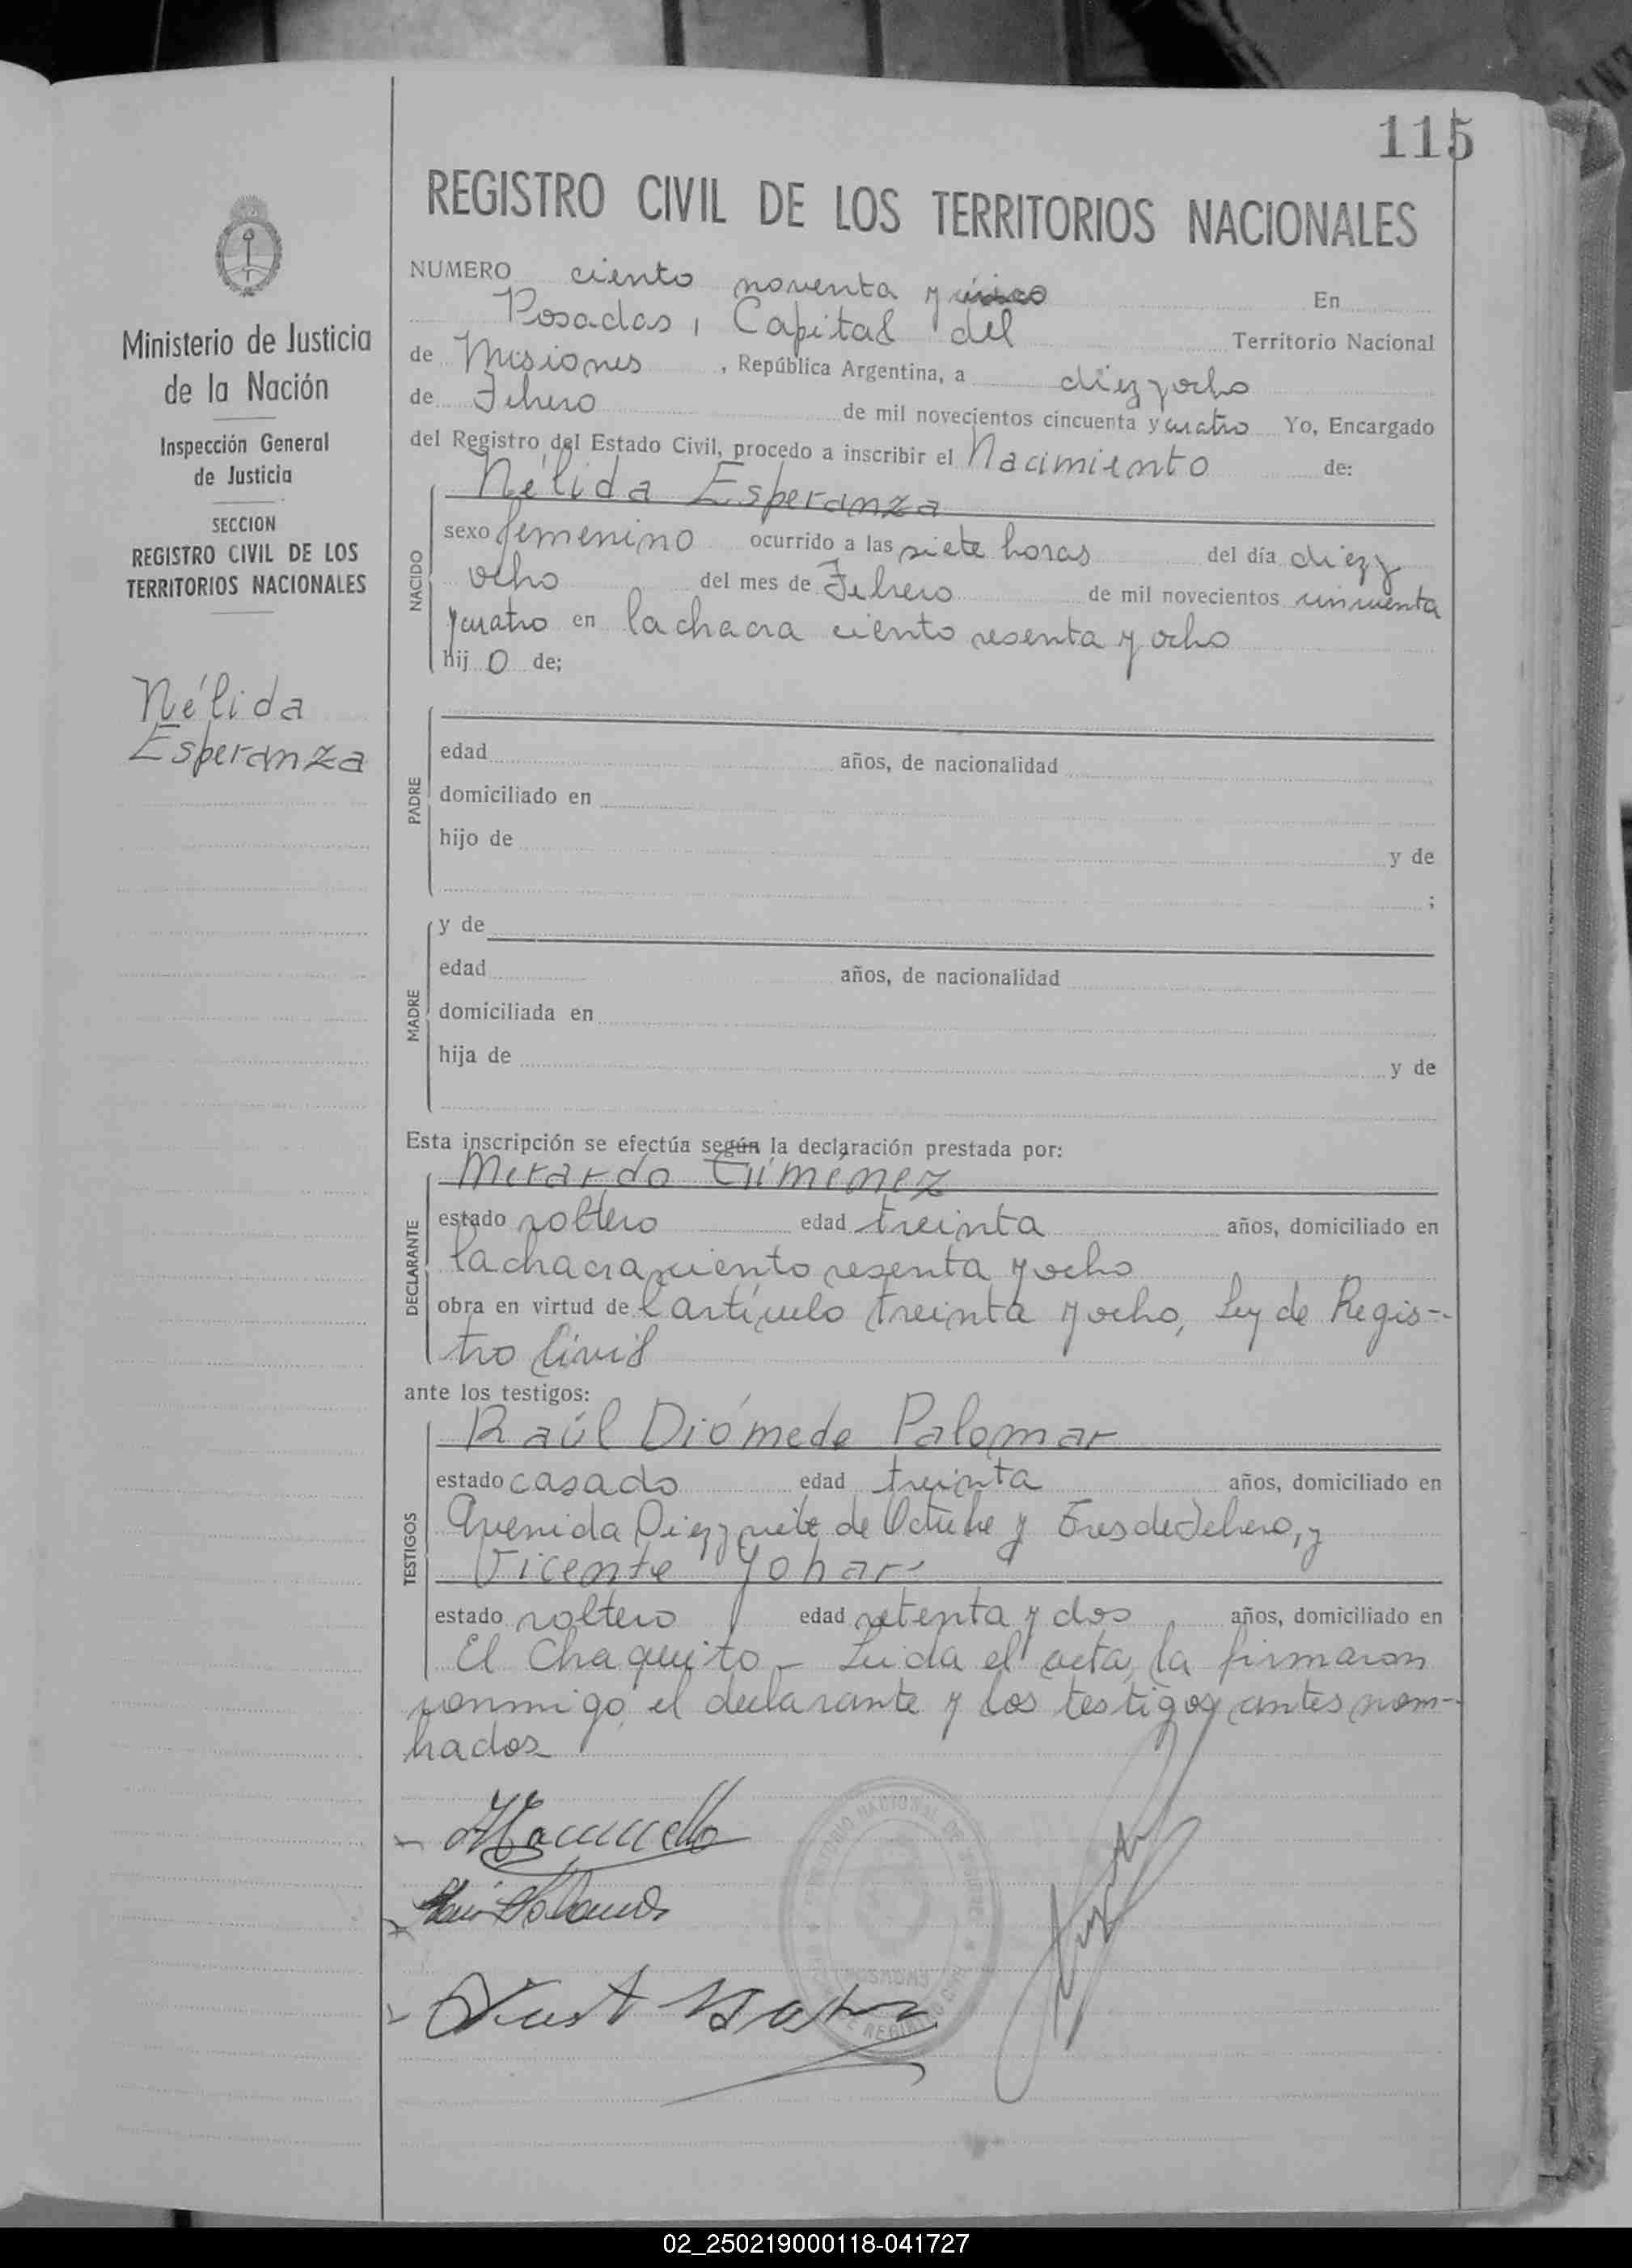 115
REGISTRO CIVIL DE LOS TERRITORIOS NACIONALES
Ministerio de Justicia
de la Nación
Inspección General
de Justicia
SECCION
REGISTRO CIVIL DE LOS
TERRITORIOS NACIONALES
Nélida
Esperanza
NUMERO ciento noventa y En
Posadas, Capital del Territorio Nacional
de Misiones, República Argentina, a diez y ocho
de Febrero de mil novecientos cincuenta y cuatro Yo, Encargado
del Registro del Estado Civil, procedo a inscribir el Nacimiento de:
NACIDO
Nélida Esperanza
sexo femenino ocurrido a las siete horas del día diez y
ocho del mes de Febrero de mil novecientos cincuenta
y cuatro en la chacra ciento sesenta y ocho
hij o de;
PADRE
edad años, de nacionalidad
domiciliado en
hijo de y de
;
MADRE
y de
edad años, de nacionalidad
domiciliada en
hija de y de
Esta inscripción se efectúa según la declaración prestada por:
DECLARANTE
Merardo Giménez
estado soltero edad treinta años, domiciliado en
la chacra ciento sesenta y ocho
obra en virtud de l artículo treinta y ocho, Ley de Regis-
tro Civil
ante los testigos:
TESTIGOS
Raúl Diómede Palomar
estado casado edad treinta años, domiciliado en
Avenida Diez y siete de Octubre y Tres de Febrero, y
Vicente Yohar
estado soltero edad setenta y dos años, domiciliado en
El Chaquito - Leida el acta, la firmaron
conmigo el declarante y los testigos antes nom-
brados
TERRITORIO NACIONAL DE
POSADAS
02_250219000118-041727